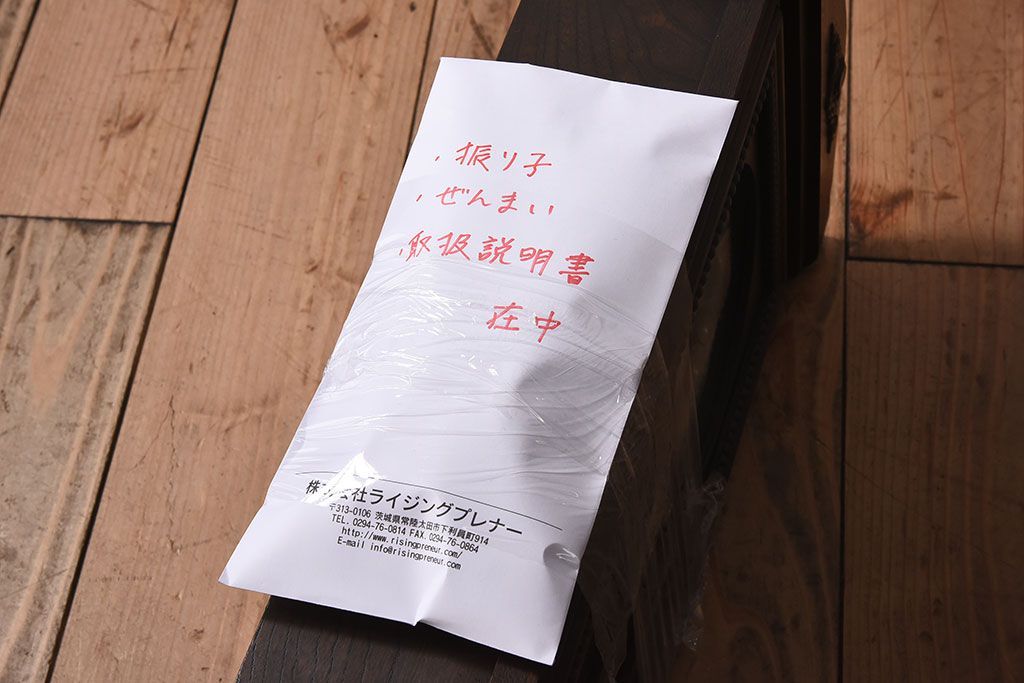 ・振り子
・ぜんまい
・取扱説明書
在中
株式会社ライジングプレナー
〒313-0106 茨城県常陸太田市下利員町914
TEL. 0294-76-0814 FAX. 0294-76-0864
http://www.risingpreneur.com/
E-mail info@risingpreneur.com